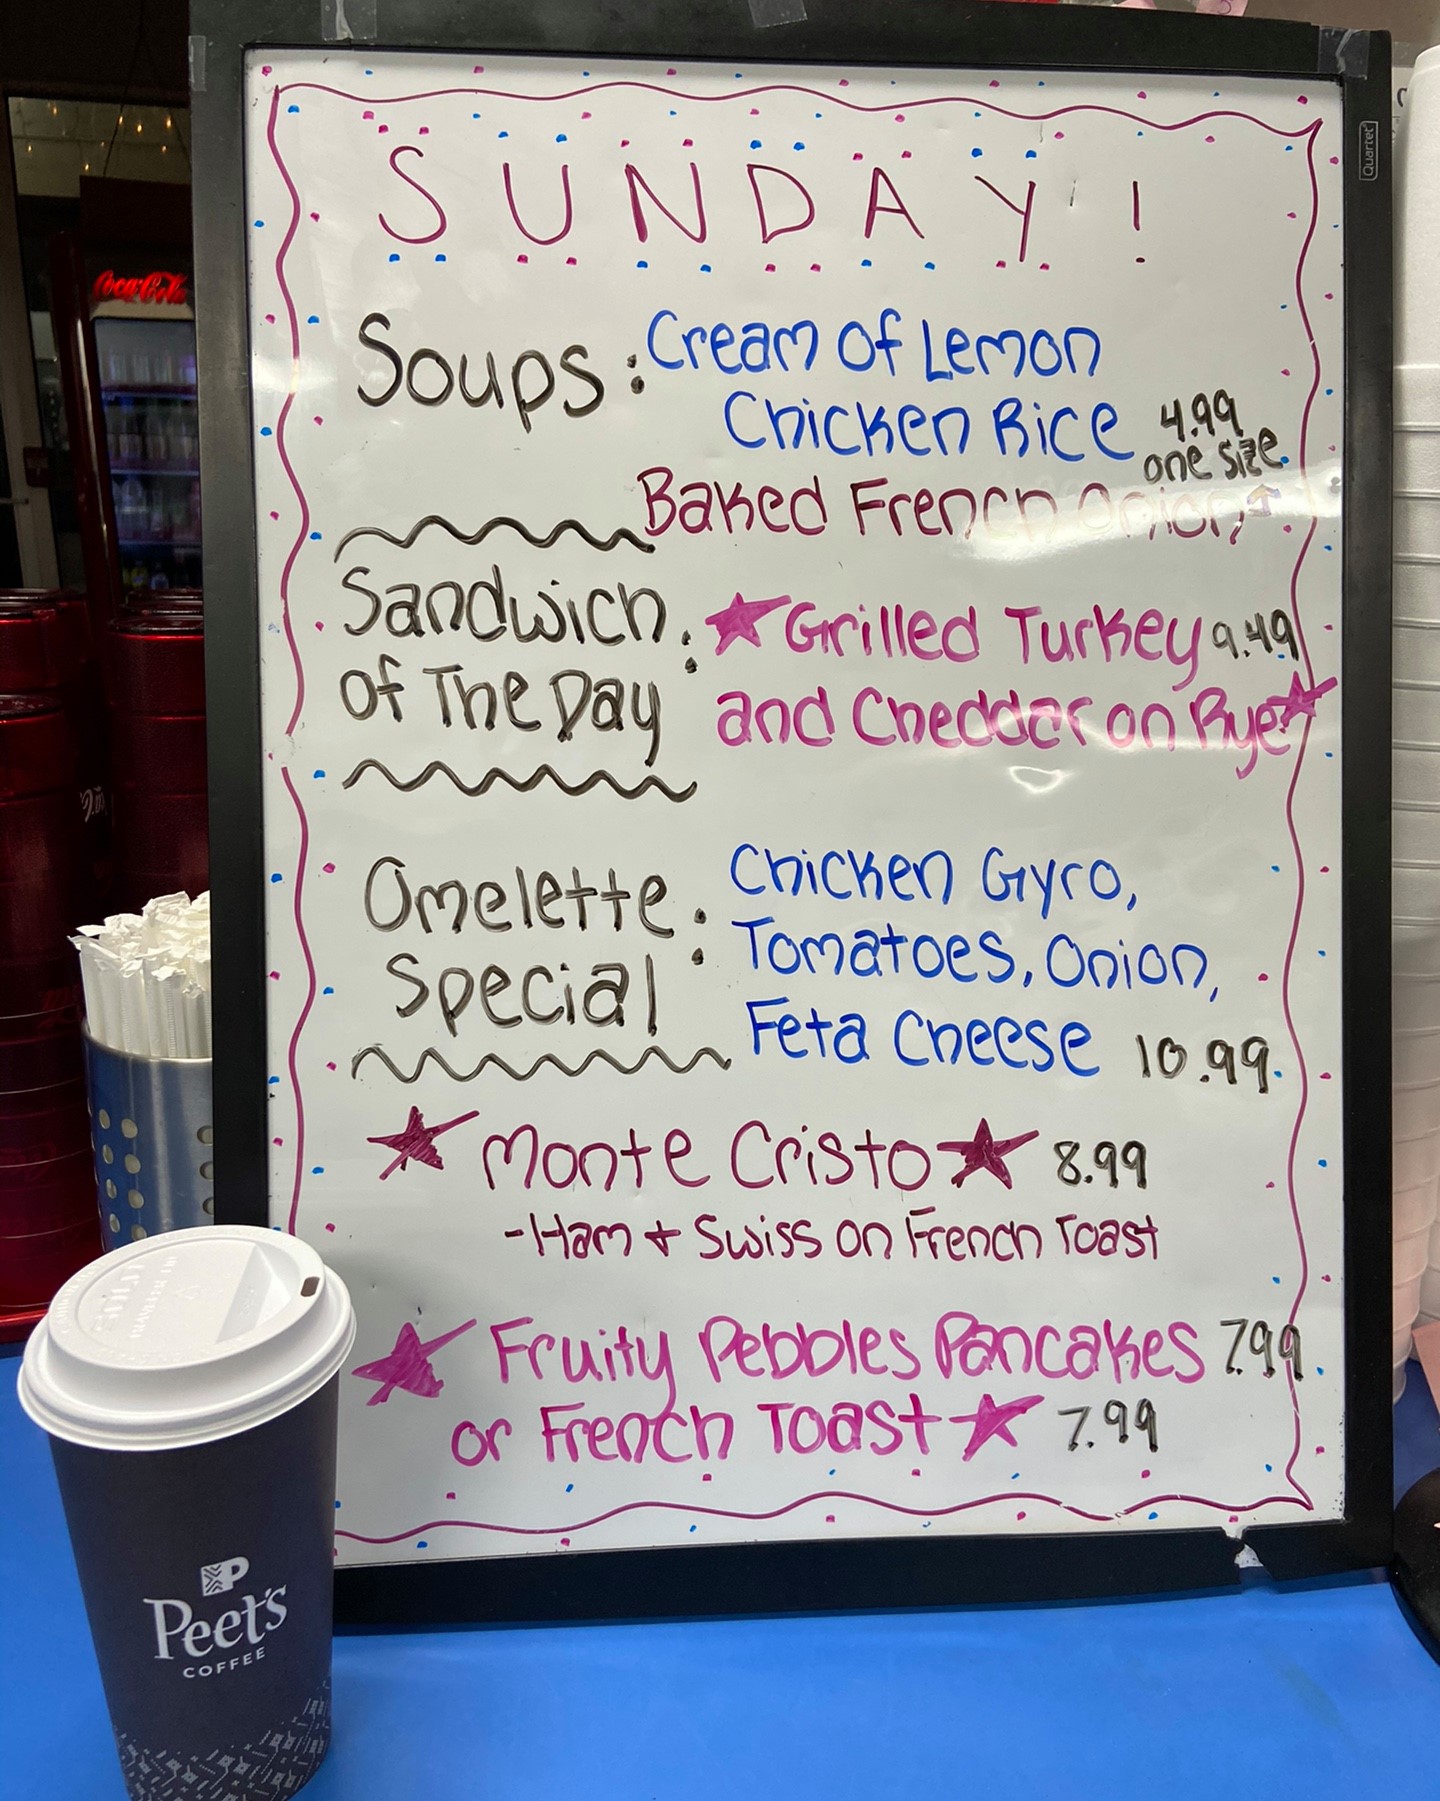 SUNDAY!
Soups: Cream of Lemon
Chicken Rice 4.99
one size
Baked French Onion
Sandwich
of The Day: Grilled Turkey 9.49
and Cheddar on Rye
Omelette
Special: Chicken Gyro,
Tomatoes, Onion,
Feta Cheese 10.99
Monte Cristo 8.99
-Ham + Swiss on French Toast
Fruity Pebbles Pancakes 7.99
or French Toast 7.99
Quartet
Coca-Cola
Peet's
COFFEE